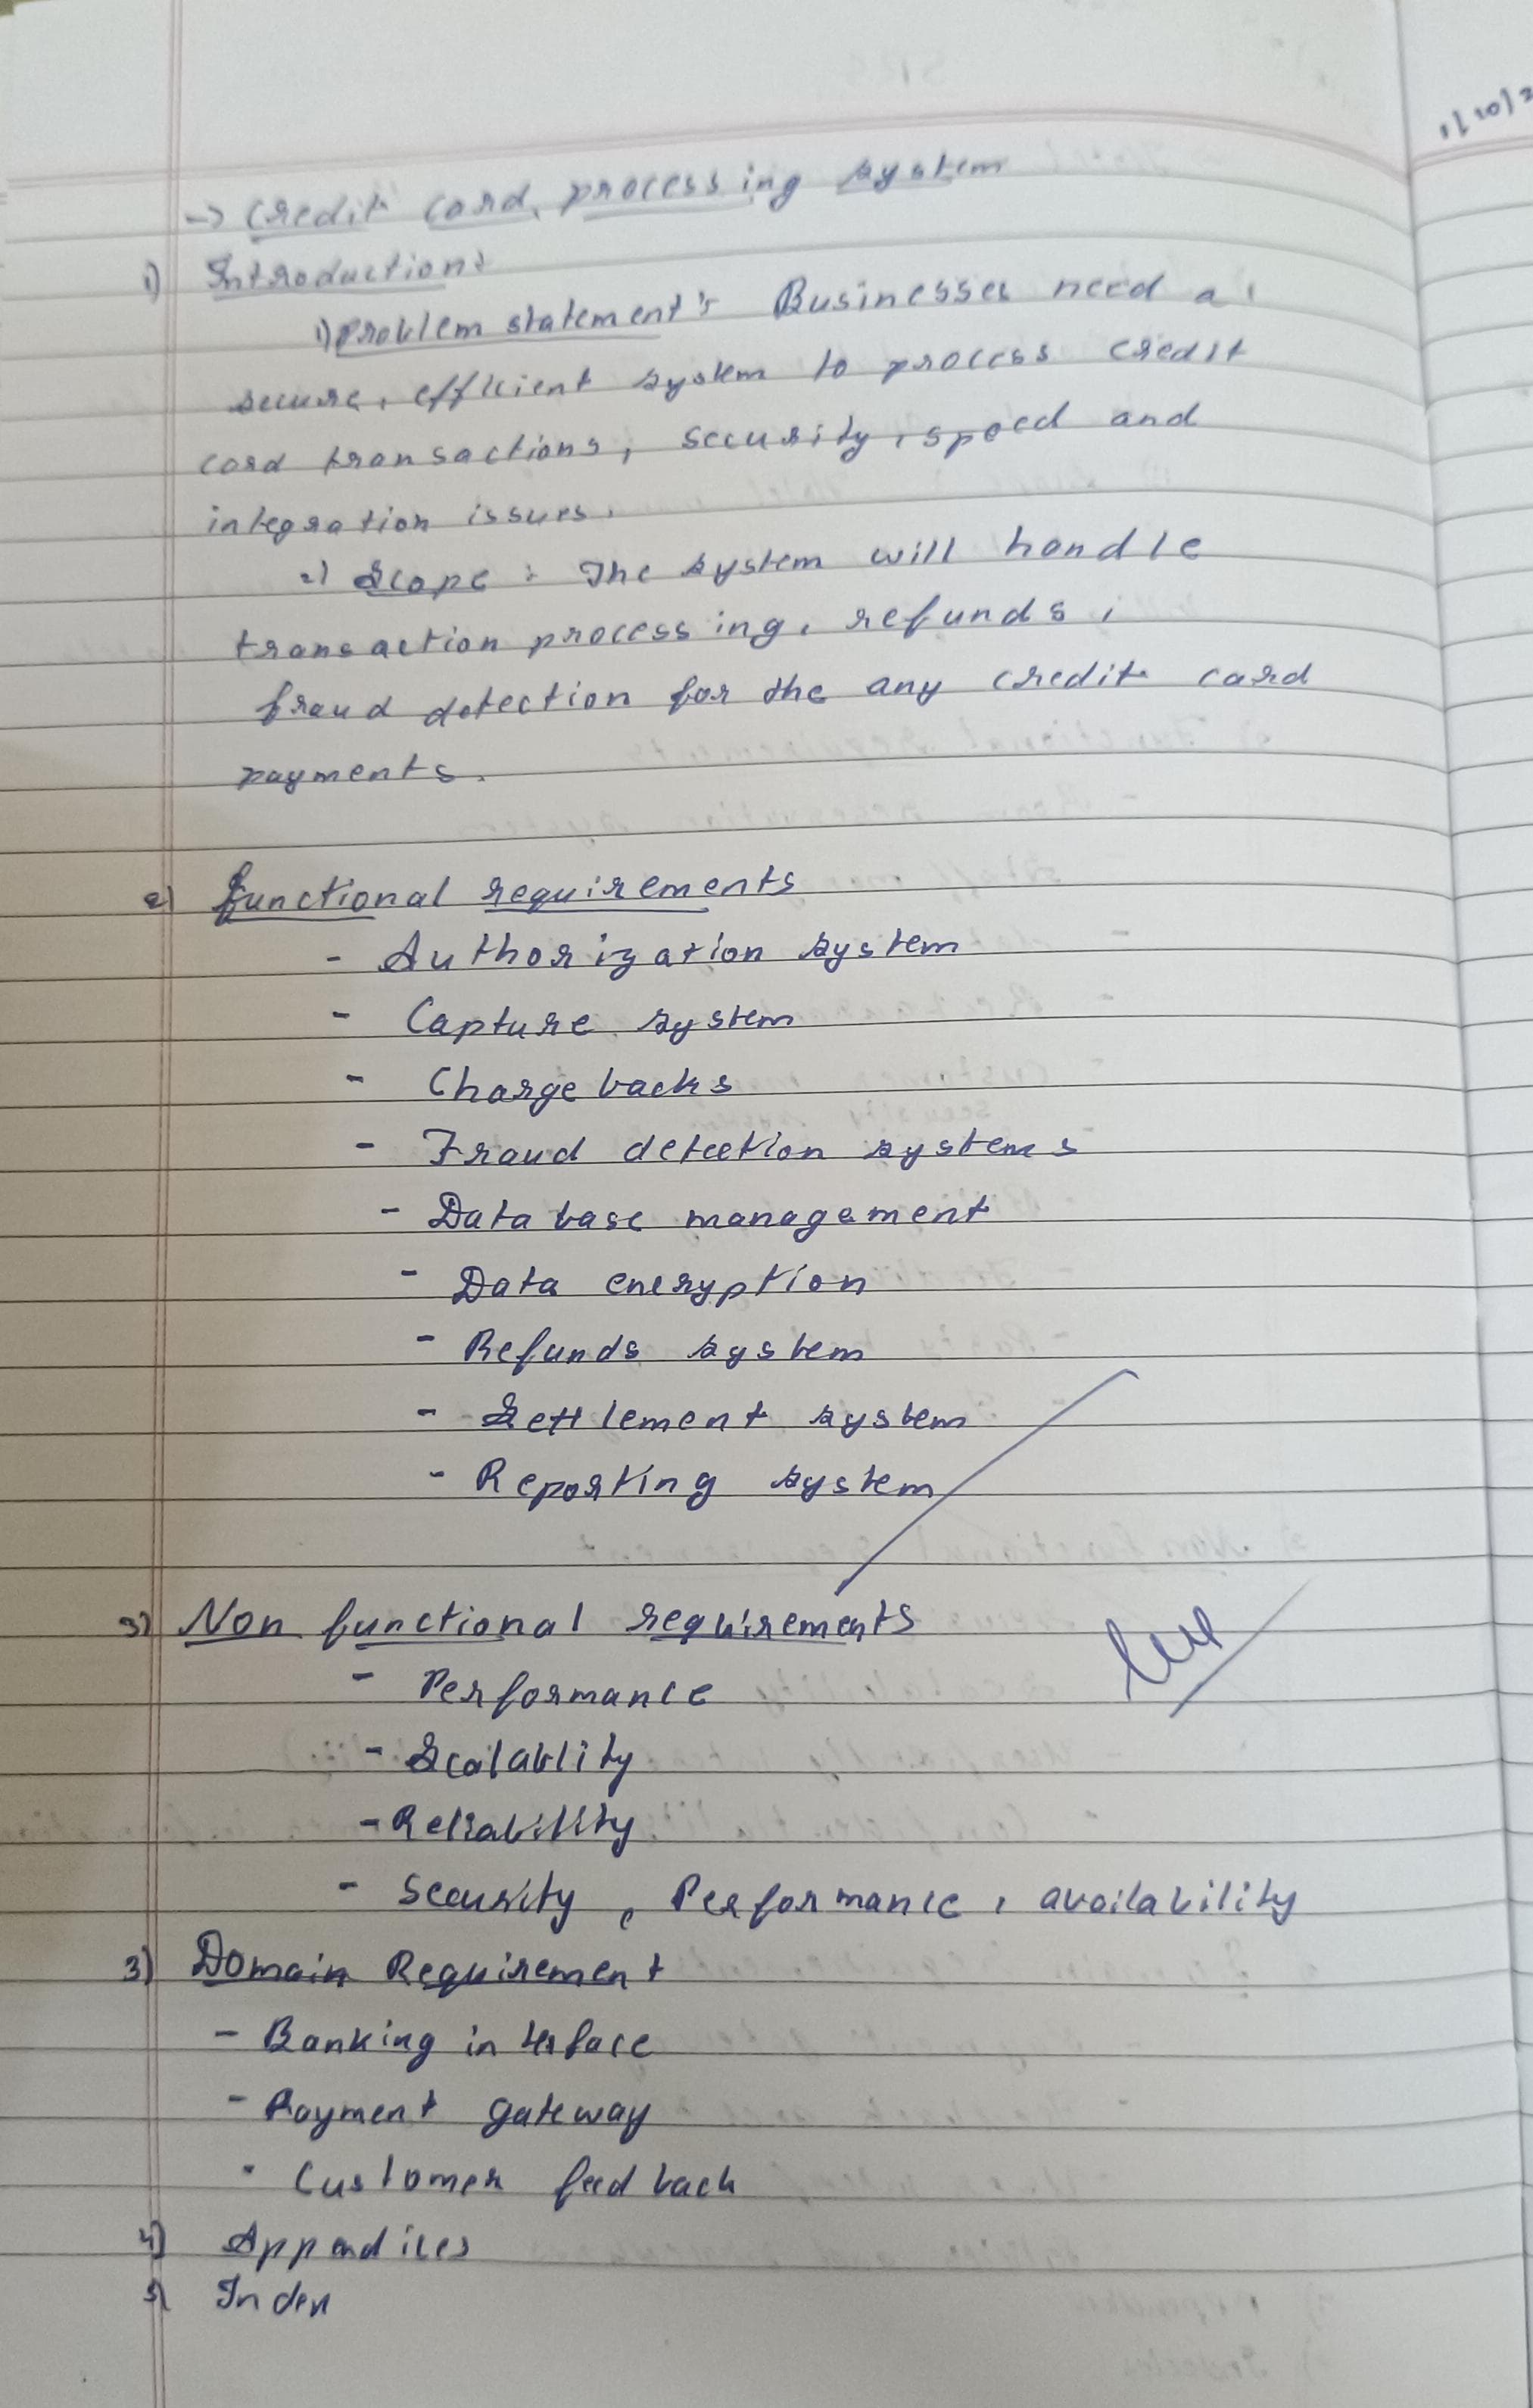 -> Credit card processing system
1) Introduction:
1) Problem statement: Businesses need a
secure, efficient system to process credit
card transactions, security, speed and
integration issues.
2) Scope: The system will handle
transaction processing, refunds,
fraud detection for the any credit card
payments.
2) functional requirements
- Authorization system
- Capture system
- Charge backs
- Fraud detection systems
- Data base management
- Data encryption
- Refunds system
- Settlement system
- Reporting system
3) Non functional requirements
- Performance
- Scalablity
- Reliability
- Security, Performance, availability
3) Domain Requirement
- Banking interface
- Payment gateway
- Customer feed back
4) Appendices
5) Index